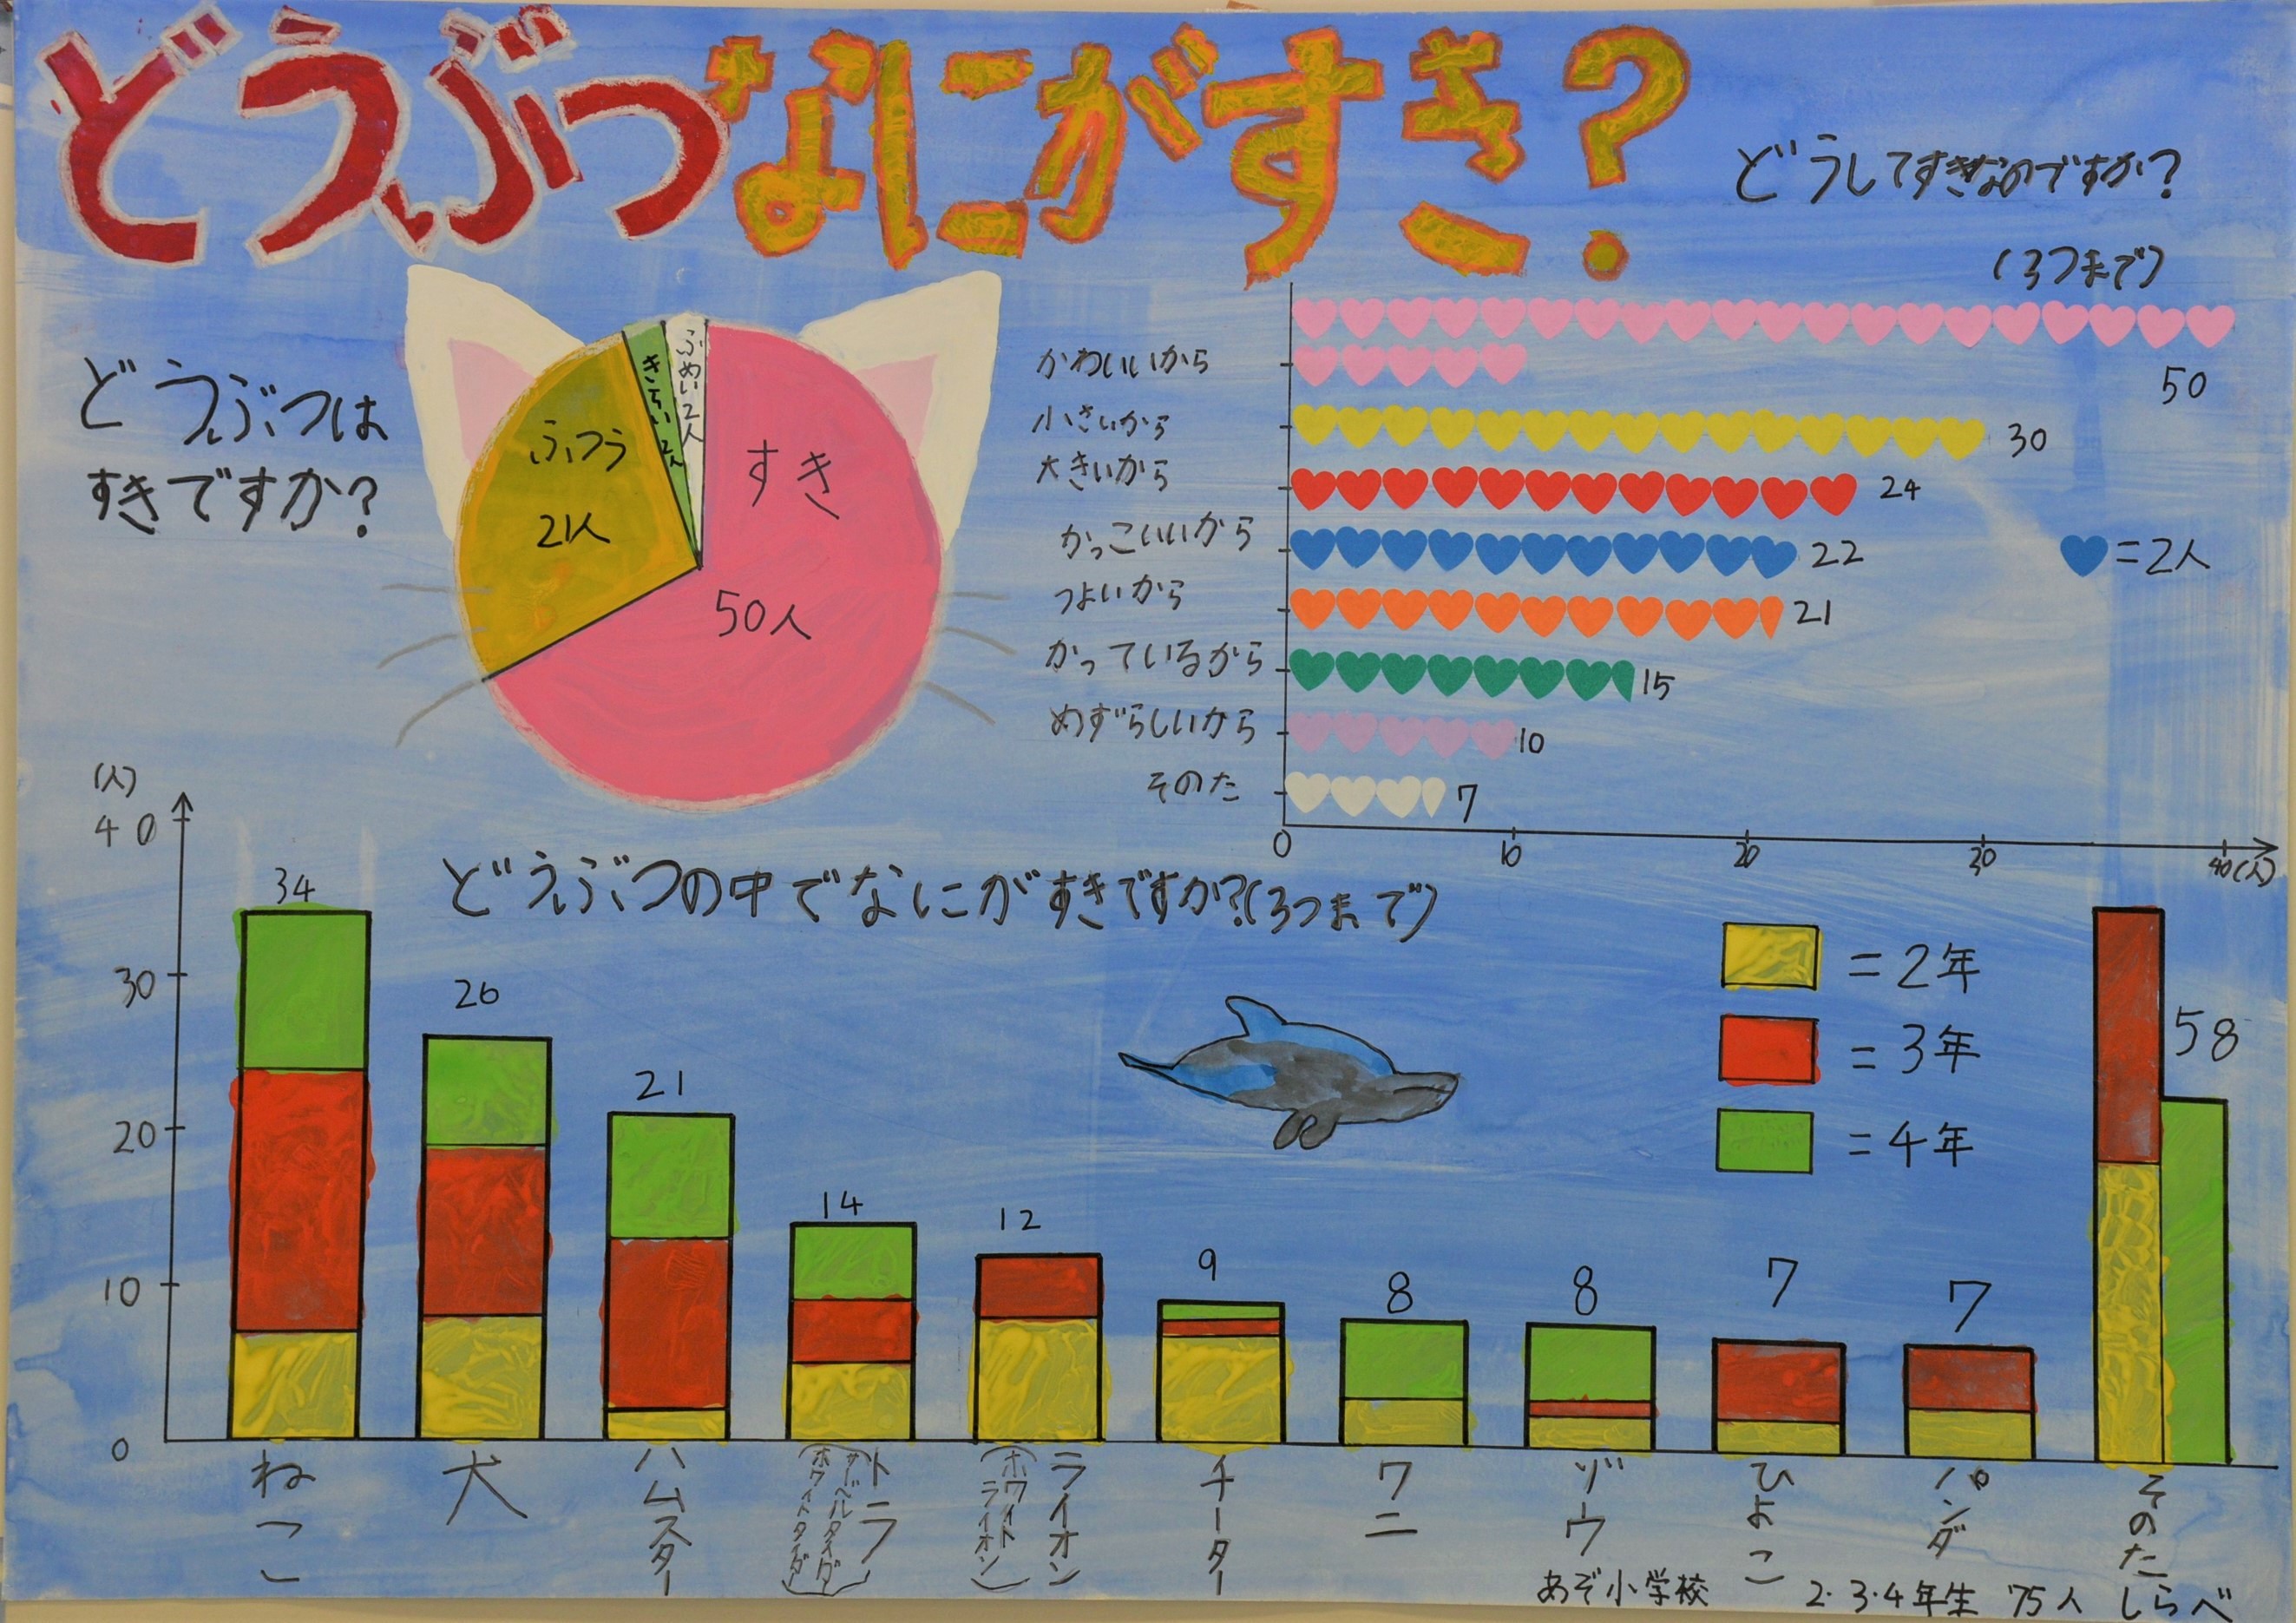 どうぶつなにがすき?
どうぶつは
すきですか?
すき
50人
ふつう
21人
きらい2人
ふめい2人
どうしてすきなのですか?
(3つまで)
かわいいから
50
小さいから
30
大きいから
24
かっこいいから
22
=2人
つよいから
21
かっているから
15
めずらしいから
10
そのた
7
0
10
20
30
40(人)
どうぶつの中でなにがすきですか?(3つまで)
(人)
40
30
20
10
0
=2年
=3年
=4年
34
26
21
14
12
9
8
8
7
7
58
ねこ
犬
ハムスター
トラ
(サーベルタイガー
ホワイトタイガー)
ライオン
(ホワイト
ライオン)
チーター
ワニ
ゾウ
ひよこ
パンダ
そのた
あぞ小学校 2・3・4年生 75人 しらべ